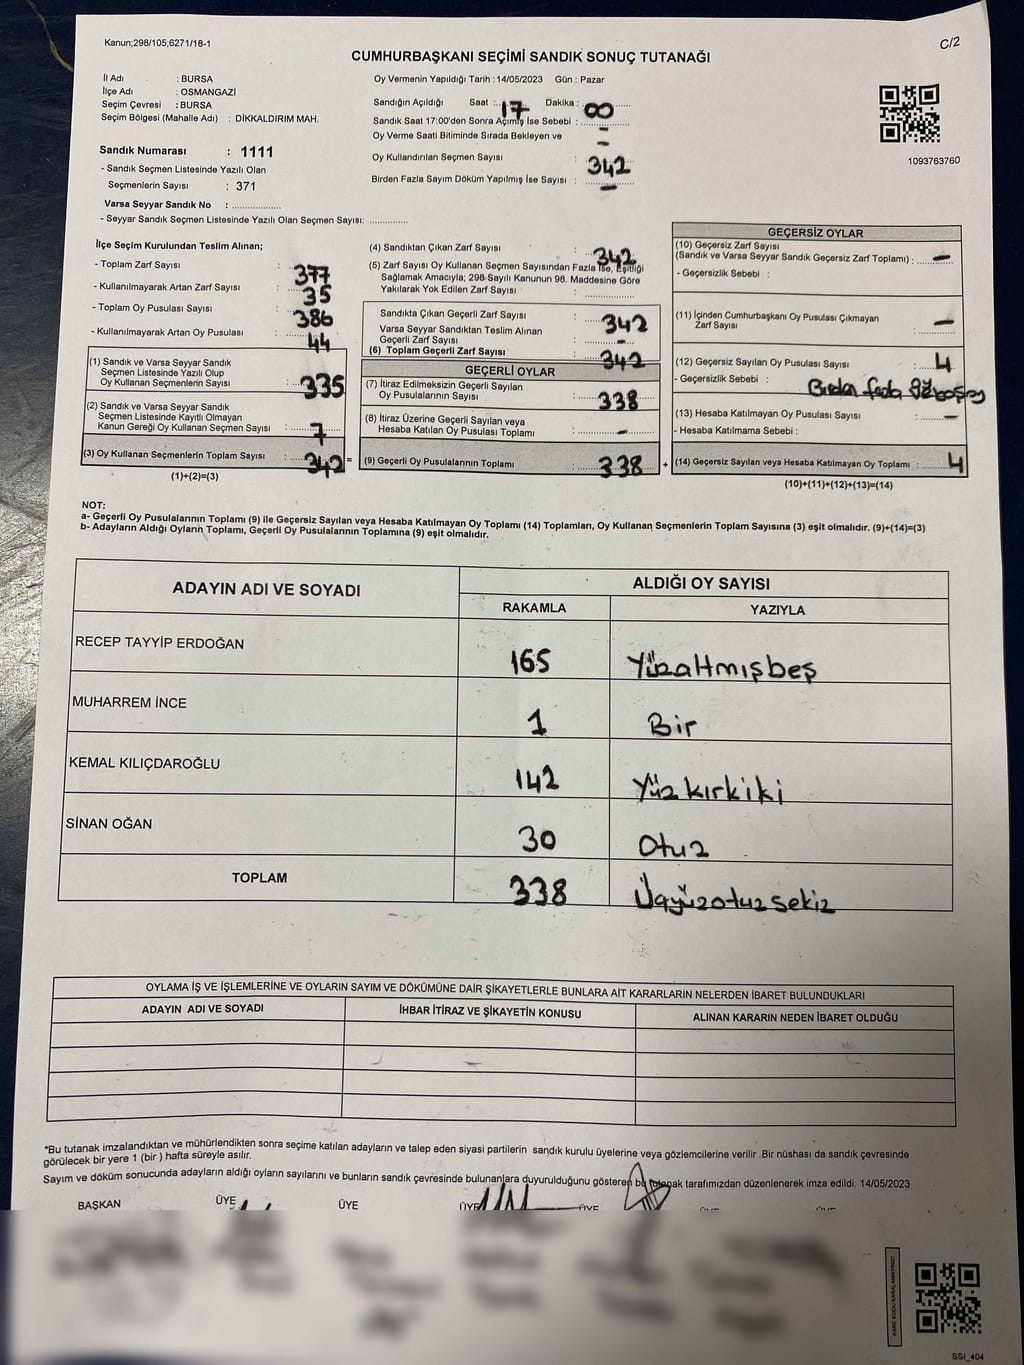 Kanun;298/105;6271/18-1
C/2
CUMHURBAŞKANI SEÇİMİ SANDIK SONUÇ TUTANAĞI
İl Adı : BURSA
İlçe Adı : OSMANGAZİ
Seçim Çevresi : BURSA
Seçim Bölgesi (Mahalle Adı) : DİKKALDIRIM MAH.
Sandık Numarası : 1111
- Sandık Seçmen Listesinde Yazılı Olan
Seçmenlerin Sayısı : 371
Varsa Seyyar Sandık No : ..................
- Seyyar Sandık Seçmen Listesinde Yazılı Olan Seçmen Sayısı: ..............
Oy Vermenin Yapıldığı Tarih : 14/05/2023 Gün : Pazar
Sandığın Açıldığı Saat : 17 Dakika : 00
Sandık Saat 17:00'den Sonra Açılmış İse Sebebi : -
Oy Verme Saati Bitiminde Sırada Bekleyen ve
Oy Kullandırılan Seçmen Sayısı : 342
Birden Fazla Sayım Döküm Yapılmış İse Sayısı : -
1093763760
İlçe Seçim Kurulundan Teslim Alınan;
- Toplam Zarf Sayısı : 377
- Kullanılmayarak Artan Zarf Sayısı : 35
- Toplam Oy Pusulası Sayısı : 386
- Kullanılmayarak Artan Oy Pusulası : 44
(1) Sandık ve Varsa Seyyar Sandık
Seçmen Listesinde Yazılı Olup
Oy Kullanan Seçmenlerin Sayısı : 335
(2) Sandık ve Varsa Seyyar Sandık
Seçmen Listesinde Kayıtlı Olmayan
Kanun Gereği Oy Kullanan Seçmen Sayısı : 7
(3) Oy Kullanan Seçmenlerin Toplam Sayısı : 342 =
(1)+(2)=(3)
(4) Sandıktan Çıkan Zarf Sayısı : 342
(5) Zarf Sayısı Oy Kullanan Seçmen Sayısından Fazla İse, Eşitliği
Sağlamak Amacıyla; 298 Sayılı Kanunun 98. Maddesine Göre
Yakılarak Yok Edilen Zarf Sayısı : ..................
Sandıkta Çıkan Geçerli Zarf Sayısı : 342
Varsa Seyyar Sandıktan Teslim Alınan
Geçerli Zarf Sayısı : -
(6) Toplam Geçerli Zarf Sayısı : 342
GEÇERLİ OYLAR
(7) İtiraz Edilmeksizin Geçerli Sayılan
Oy Pusulasının Sayısı : 338
(8) İtiraz Üzerine Geçerli Sayılan veya
Hesaba Katılan Oy Pusulası Toplamı : -
(9) Geçerli Oy Pusulalarının Toplamı : 338 +
GEÇERSİZ OYLAR
(10) Geçersiz Zarf Sayısı
(Sandık ve Varsa Seyyar Sandık Geçersiz Zarf Toplamı) : -
- Geçersizlik Sebebi :
(11) İçinden Cumhurbaşkanı Oy Pusulası Çıkmayan
Zarf Sayısı : -
(12) Geçersiz Sayılan Oy Pusulası Sayısı : 4
- Geçersizlik Sebebi : Birden fazla
(13) Hesaba Katılmayan Oy Pusulası Sayısı : -
- Hesaba Katılmama Sebebi :
(14) Geçersiz Sayılan veya Hesaba Katılmayan Oy Toplamı : 4
(10)+(11)+(12)+(13)=(14)
NOT:
a- Geçerli Oy Pusulalarının Toplamı (9) ile Geçersiz Sayılan veya Hesaba Katılmayan Oy Toplamı (14) Toplamları, Oy Kullanan Seçmenlerin Toplam Sayısına (3) eşit olmalıdır. (9)+(14)=(3)
b- Adayların Aldığı Oyların Toplamı, Geçerli Oy Pusulalarının Toplamına (9) eşit olmalıdır.
ADAYIN ADI VE SOYADI ALDIĞI OY SAYISI
RAKAMLA YAZIYLA
RECEP TAYYİP ERDOĞAN 165 Yüzaltmışbeş
MUHARREM İNCE 1 Bir
KEMAL KILIÇDAROĞLU 142 Yüz kırk iki
SİNAN OĞAN 30 Otuz
TOPLAM 338 Üçyüzotuzsekiz
OYLAMA İŞ VE İŞLEMLERİNE VE OYLARIN SAYIM VE DÖKÜMÜNE DAİR ŞİKAYETLERLE BUNLARA AİT KARARLARIN NELERDEN İBARET BULUNDUKLARI
ADAYIN ADI VE SOYADI İHBAR İTİRAZ VE ŞİKAYETİN KONUSU ALINAN KARARIN NEDEN İBARET OLDUĞU
*Bu tutanak imzalandıktan ve mühürlendikten sonra seçime katılan adayların ve talep eden siyasi partilerin sandık kurulu üyelerine veya gözlemcilerine verilir .Bir nüshası da sandık çevresinde
görülecek bir yere 1 (bir ) hafta süreyle asılır.
Sayım ve döküm sonucunda adayların aldığı oyların sayılarını ve bunların sandık çevresinde bulunanlara duyurulduğunu gösteren bu tutanak tarafımızdan düzenlenerek imza edildi. 14/05/2023
BAŞKAN ÜYE ÜYE ÜYE ÜYE
KARE KODU KARALAMAYINIZ!
SSI_404